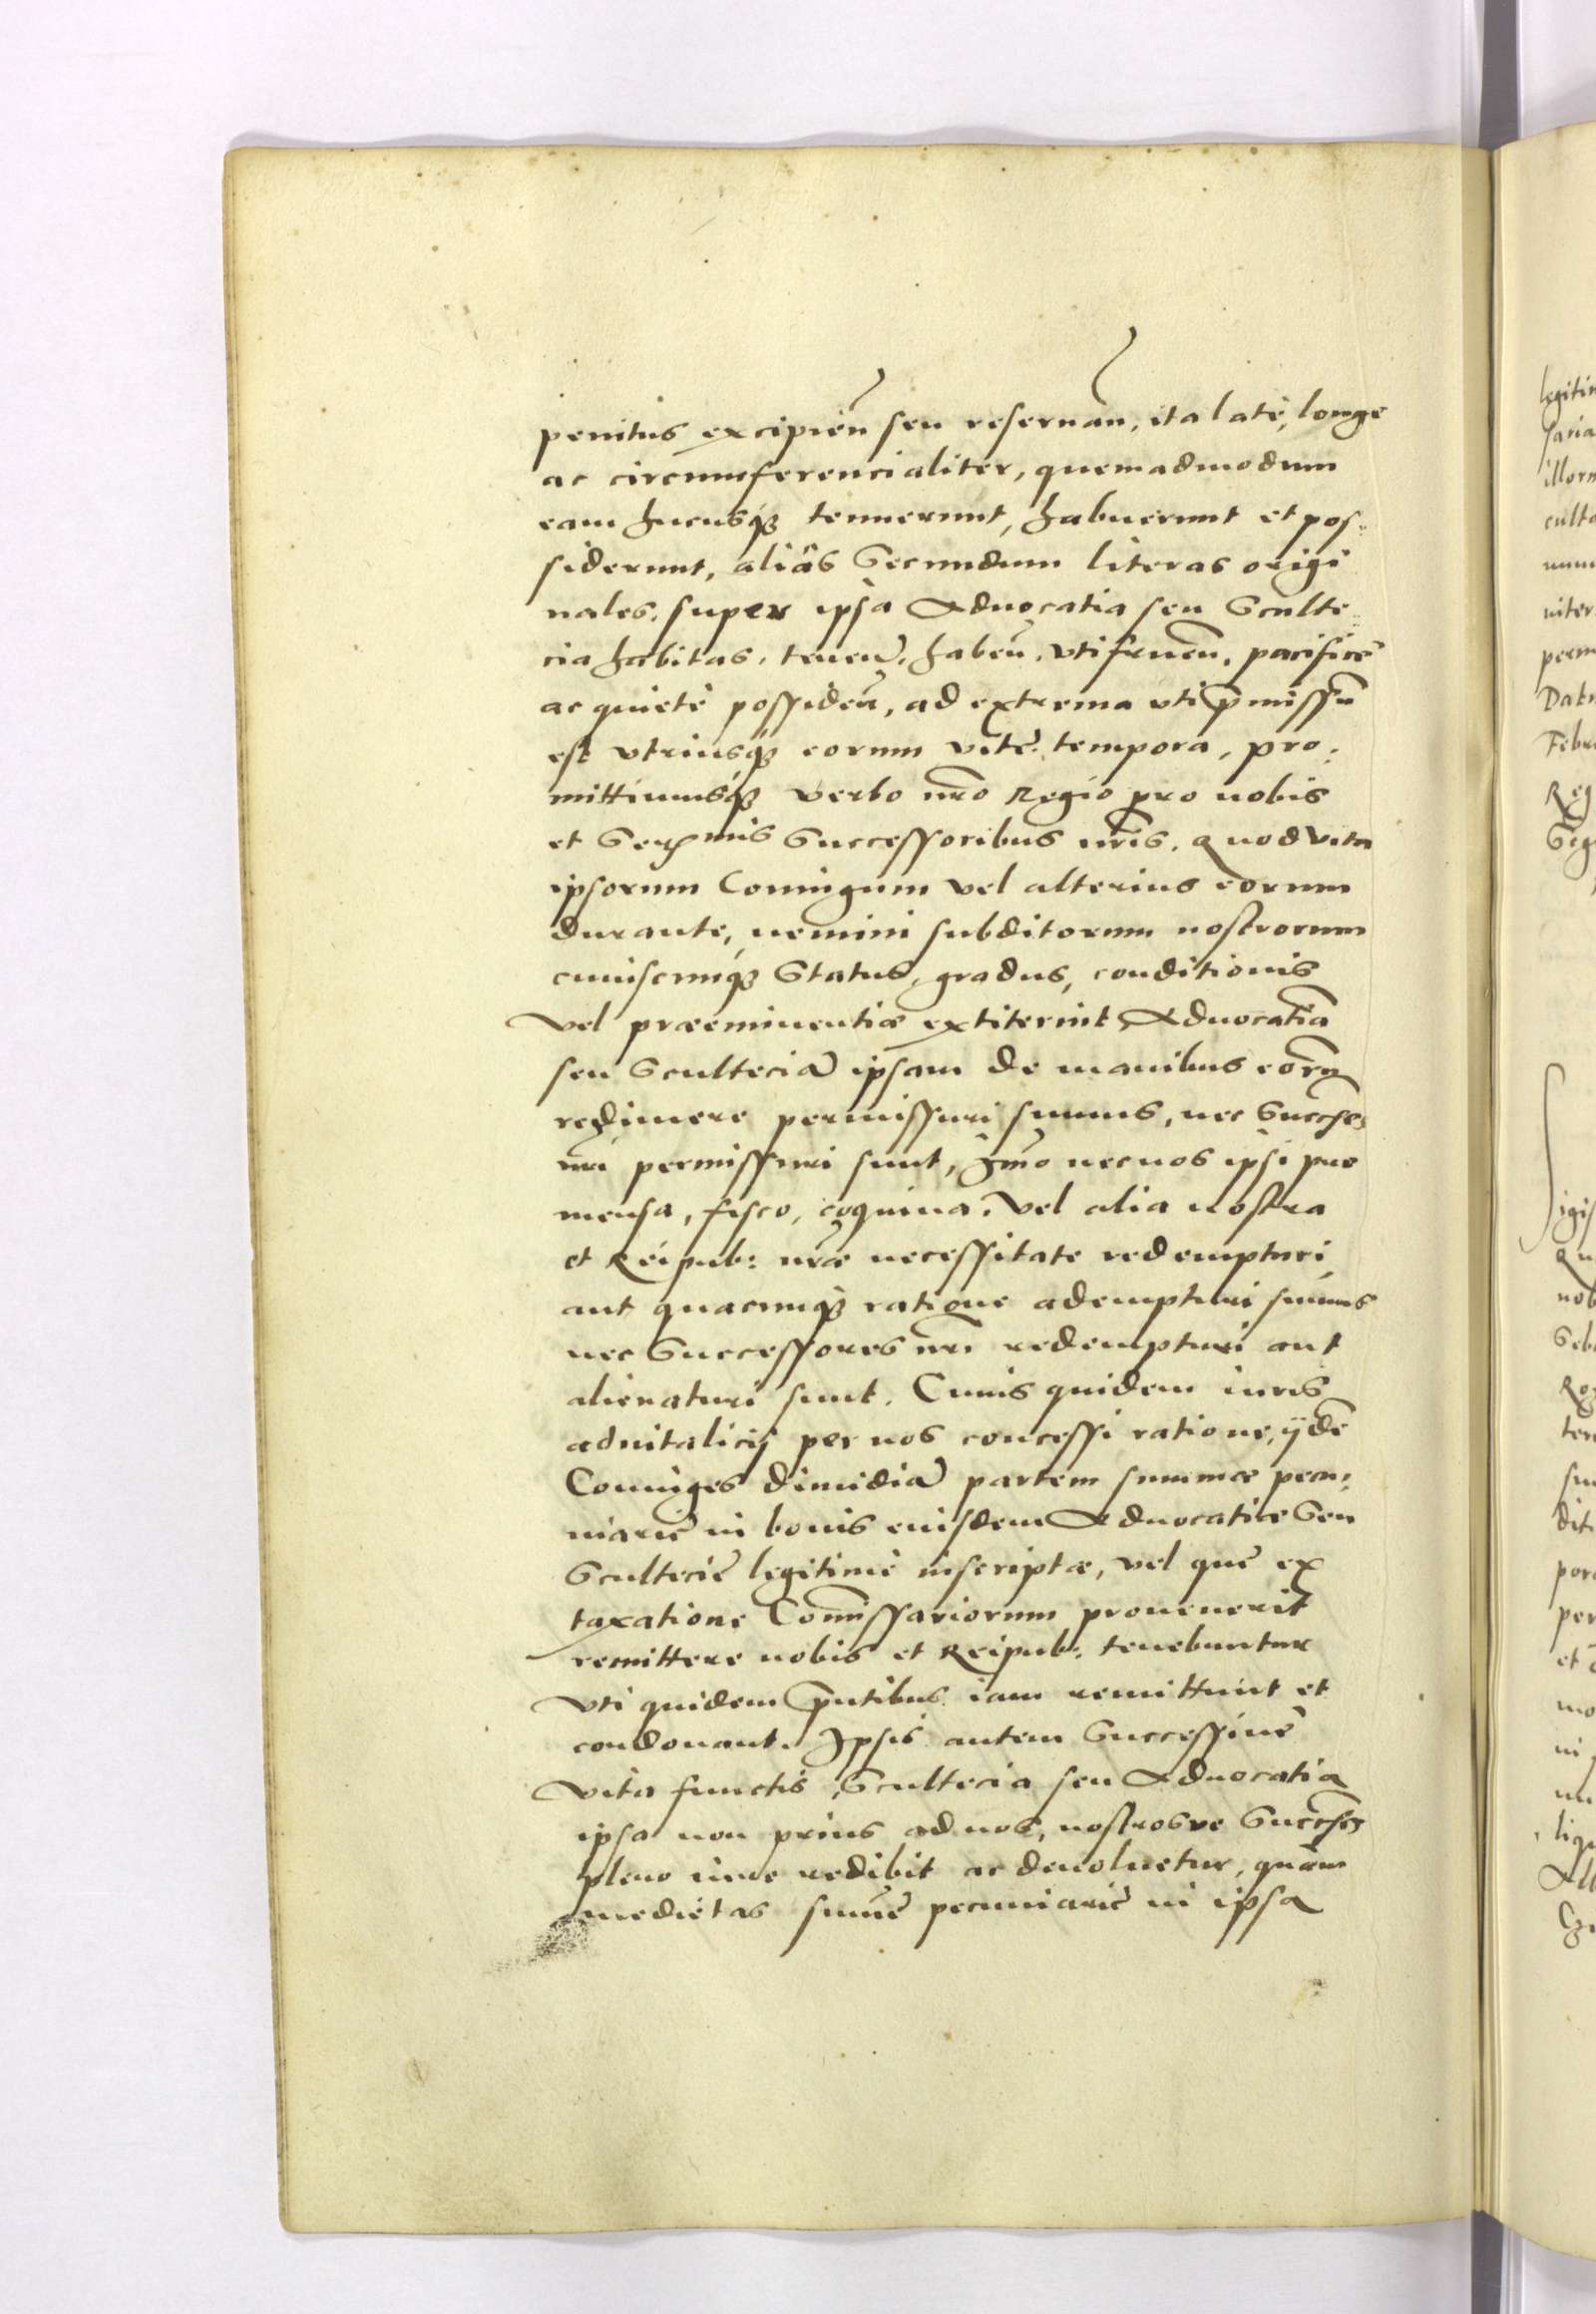 penitus excipien̄ seu reseruan̄, ita latè, longe
ac circumferencialiter, quemadmodum
eam hucusq₃ tenuerunt, habuerunt et pos-
siderunt, aliâs Secundum literas origi
nales, super ipsa Aduocatia seu Sculte-
cia habitas, tenen̄, haben̄, vtifruen̄, pacificè
ac quietè possiden̄, ad extrema vti p̄missū
est vtriusq₃ eorum vitę tempora, pro-
mittimusq₃ verbo nr̄o Regio pro nobis
et Serₘmis Successoribus nr̄is, quod vita
ipsorum Coniugum vel alterius eorum
durante, nemini subditorum nostrorum
cuiuscunq₃ Status, gradus, conditionis
vel præeminentiæ extiterint Aduocatiā
seu Sculteciā ipsam de manibus eōrꝝ
redimere permissuri sumus, nec Succes̄s
nr̄i permissuri sunt, Im̄o nec nos ipsi pro
mensa, fisco, coquina, vel alia nostra
et Reipub: nr̄æ necessitate redempturi
aut quacunq₃ ratione adempturi sumus
nec Successores nr̄i redempturi aut
alienaturi sunt. Cuius quidem iuris
aduitalicij per nos concessi ratione, ijdē
Coniuges dimidiā partem summæ pecu-
niarię in bonis eiusdem Aduocatiæ Seu
Scultecię legitimè inscriptæ, vel quę ex
taxatione Com̄issariorum prouenerit
remittere nobis et Reipub: tenebuntur
vti quidem p̄ntibus iam remittunt et
condonant. Ipsis autem Successiuè
vita functis, Scultecia seu Aduocatia
ipsa non prius ad nos, nostrosve Succes̄s
pleno iure redibit ac deuoluetur, quàm
medietas sum̄ę pecuniarię in ipsa